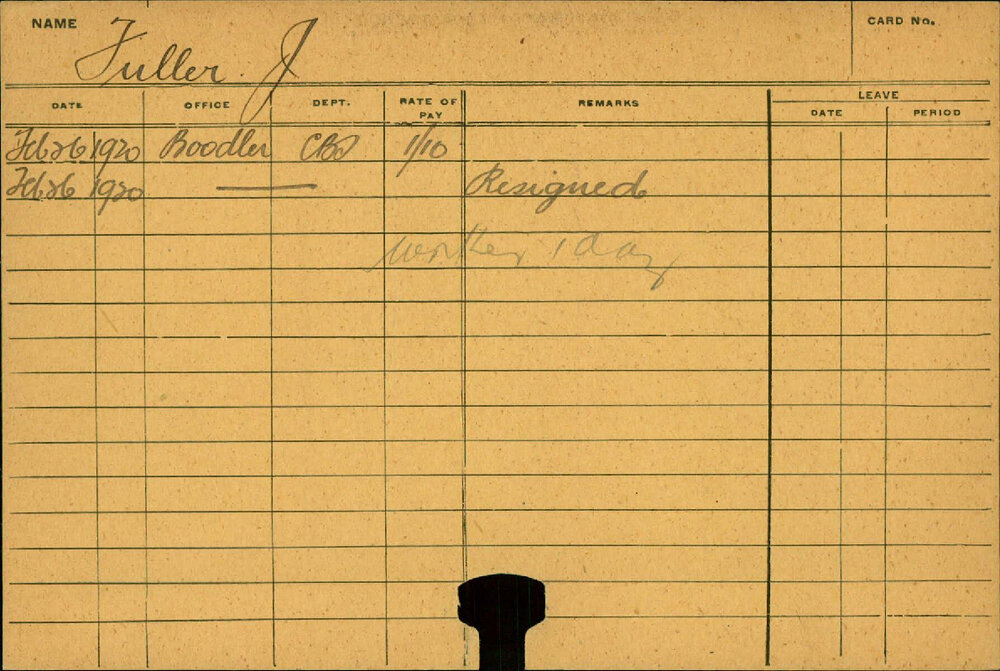 NAME Fuller. J CARD No.
DATE OFFICE DEPT. RATE OF PAY REMARKS LEAVE
DATE PERIOD
Feb 26 1920 Boodler CBJ 1/10
Feb 26 1920 —— Resigned
worked 1 day